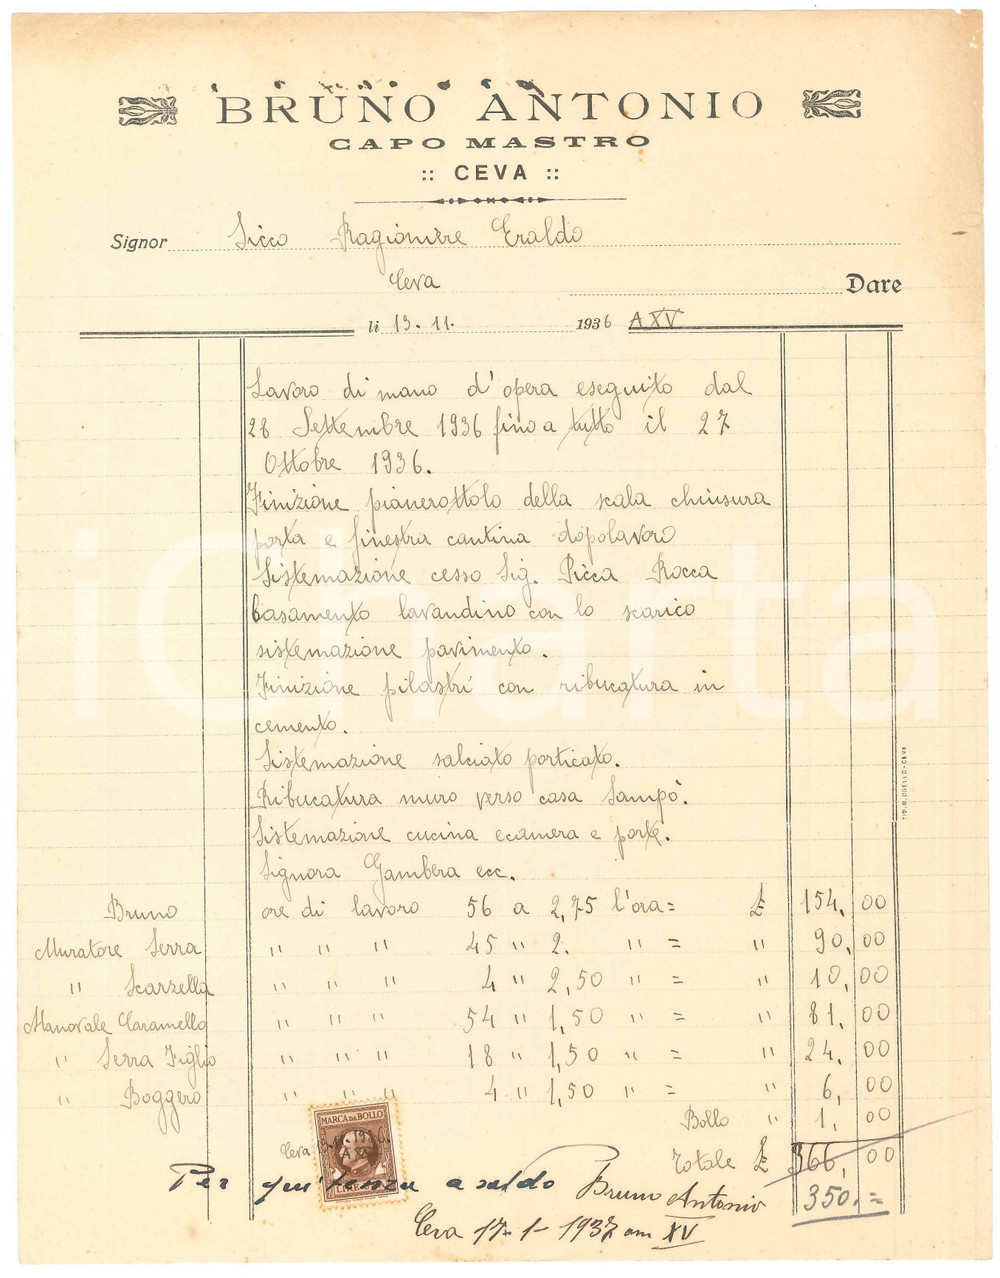 BRUNO ANTONIO
CAPO MASTRO
:: CEVA ::
Signor Sicco Ragioniere Eraldo
Ceva
Dare
li 13.11. 1936 A XV
Lavoro di mano d'opera eseguito dal
28 Settembre 1936 fino a tutto il 27
Ottobre 1936.
Finizione pianerottolo della scala chiusura
porta e finestra cantina dopolavoro
Sistemazione cesso Sig. Picca Rocca
basamento lavandino con lo scarico
sistemazione pavimento.
Finizione pilastri con ribucatura in
cemento.
Sistemazione salciato porticato.
Ribucatura muro verso casa Sampò.
Sistemazione cucina e camera e porte.
Signora Gambera ecc.
Bruno ore di lavoro 56 a 2,75 l'ora = £ 154,00
Muratore Serra " " " 45 " 2. " = " 90,00
" Scarzella " " " 4 " 2,50 " = " 10,00
Manovale Caramello " " " 54 " 1,50 " = " 81,00
" Serra Figlio " " " 18 " 1,50 " = " 24,00
" Boggero " " " 4 " 1,50 " = " 6,00
Bollo " 1,00
Totale £ 366,00
350.=
MARCA DA BOLLO
Ceva
A XV
LIRE
Per quitenza a saldo Bruno Antonio
Ceva 17-1-1937 am XV
iCharta